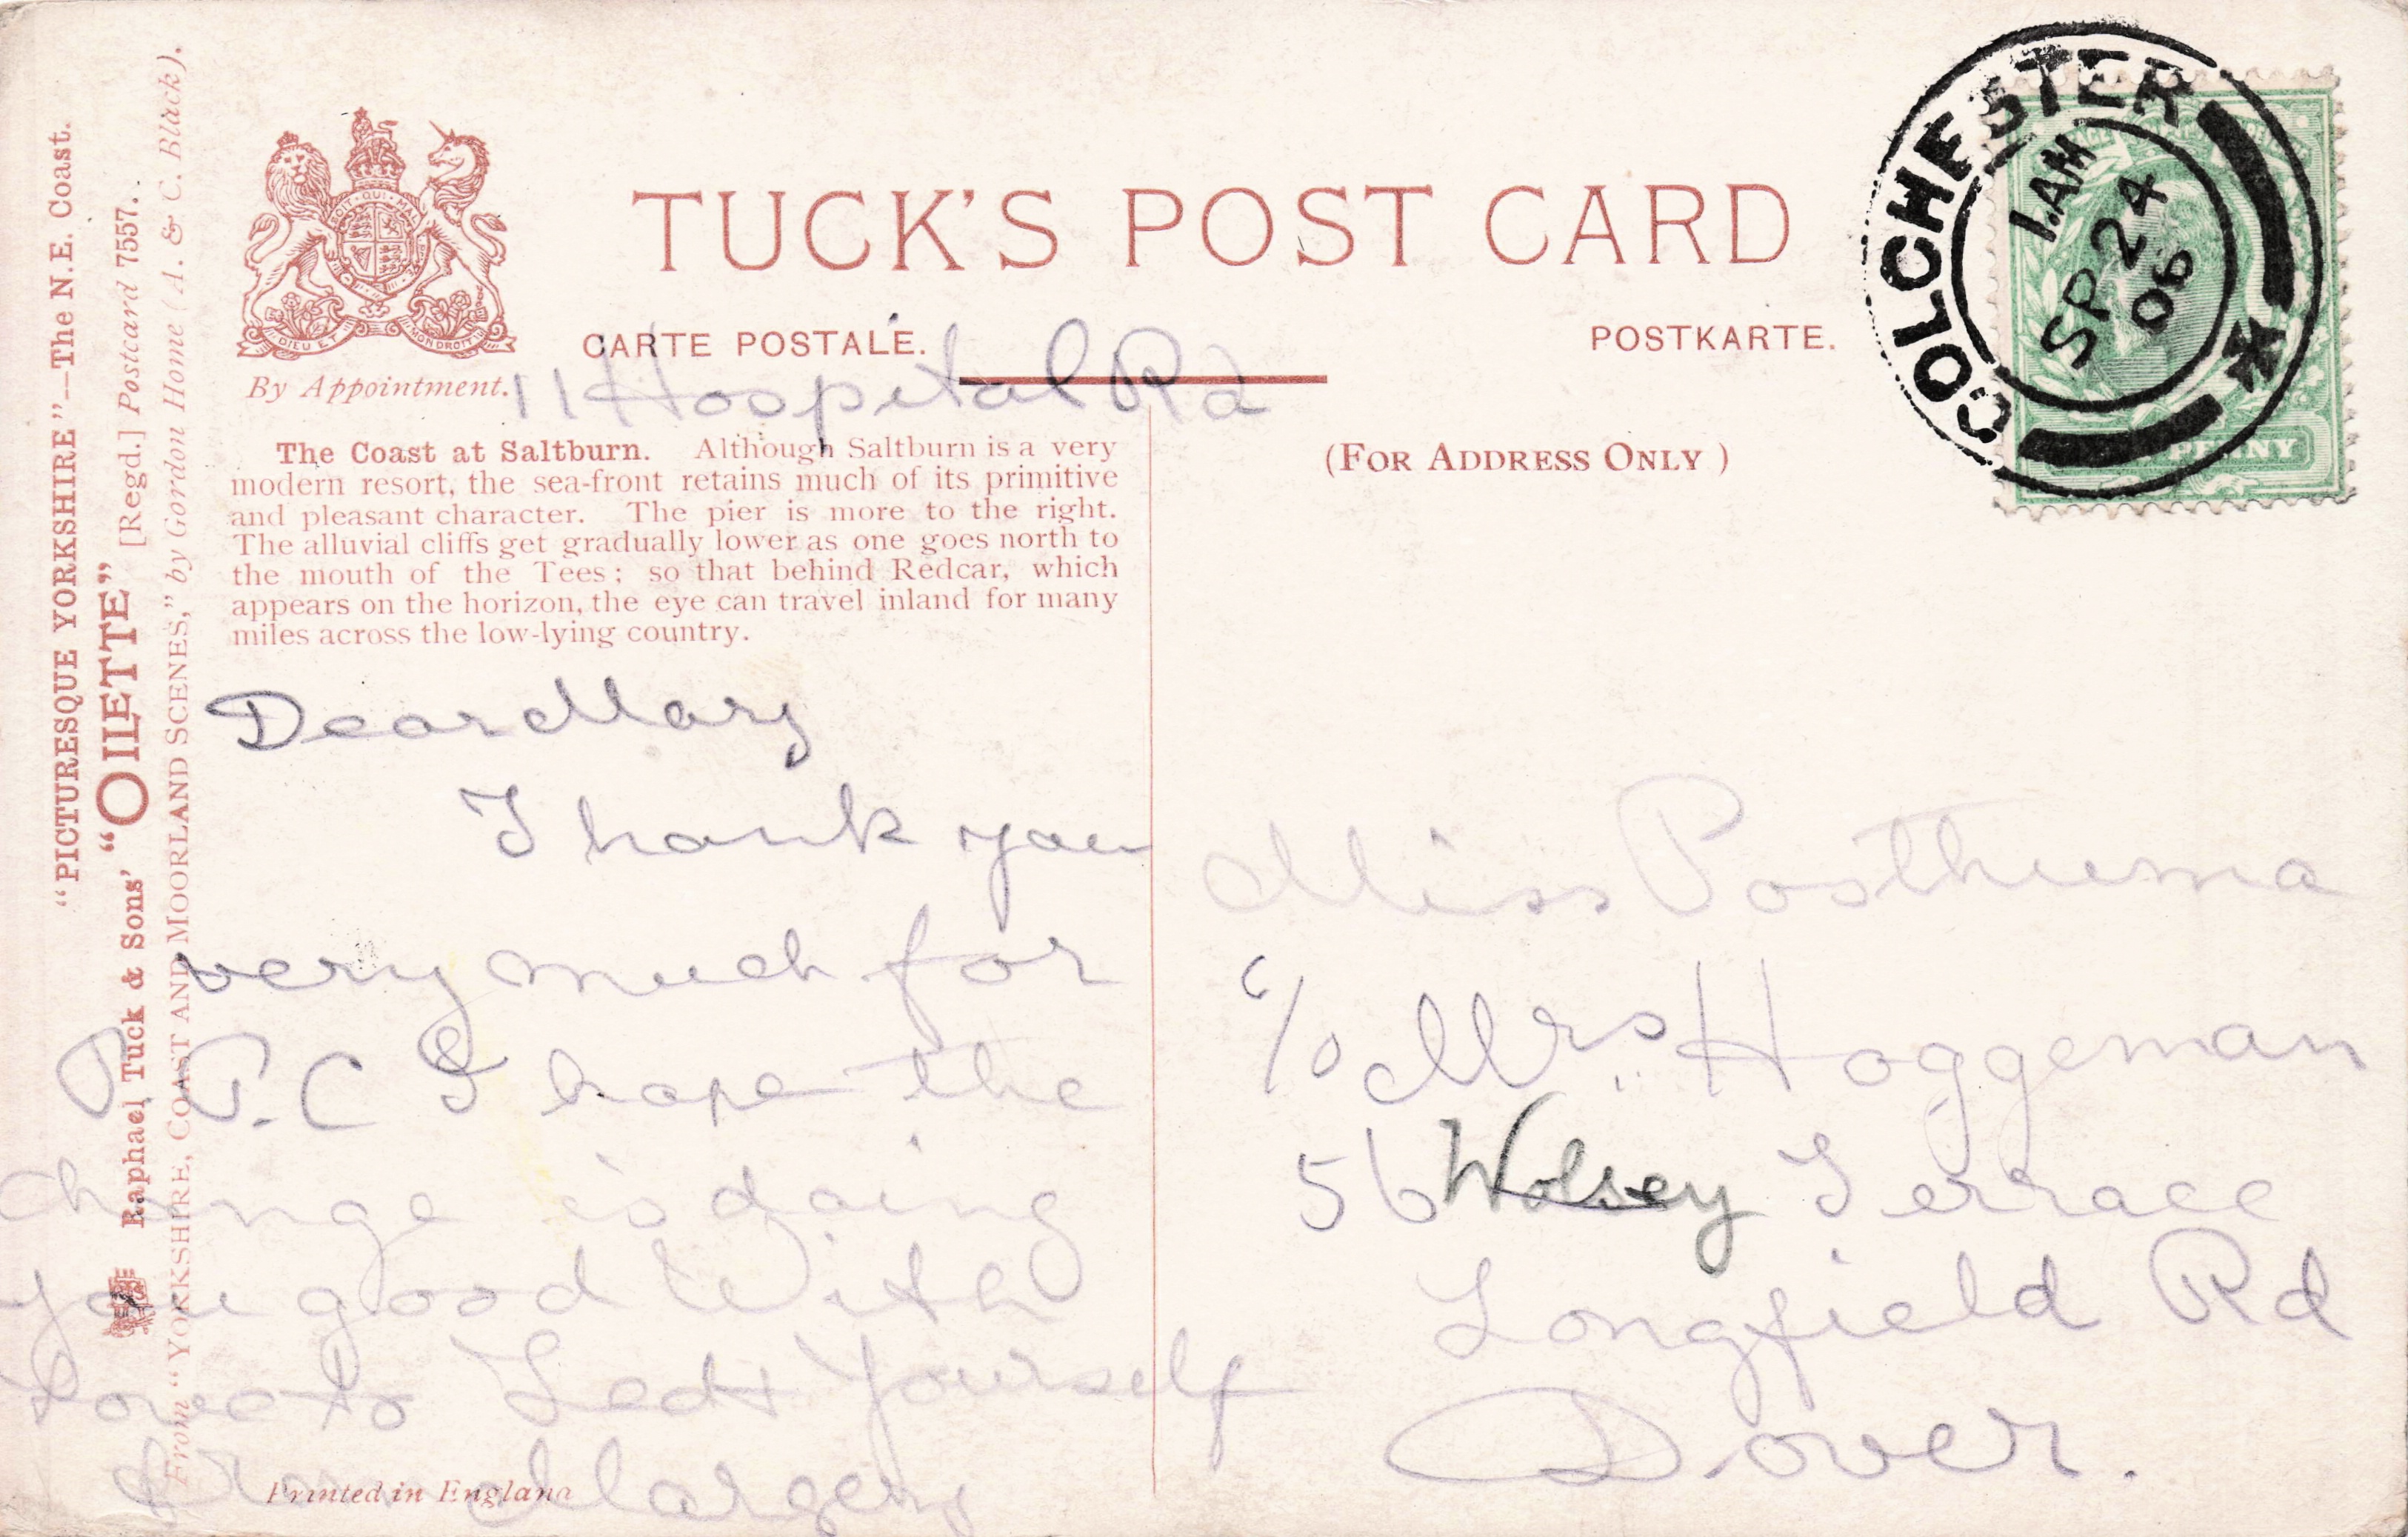 "PICTURESQUE YORKSHIRE"—The N.E. Coast.
Raphael Tuck & Sons' "OILETTE" [Regd.] Postcard 7557.
From "YORKSHIRE, COAST AND MOORLAND SCENES," by Gordon Home (A. & C. Black).
DIEU ET MON DROIT
By Appointment.
TUCK'S POST CARD
CARTE POSTALE.
POSTKARTE.
(FOR ADDRESS ONLY)
COLCHESTER
1.AM
SP 24
06
PENNY
11 Hospital Rd
The Coast at Saltburn. Although Saltburn is a very
modern resort, the sea-front retains much of its primitive
and pleasant character. The pier is more to the right.
The alluvial cliffs get gradually lower as one goes north to
the mouth of the Tees; so that behind Redcar, which
appears on the horizon, the eye can travel inland for many
miles across the low-lying country.
Dear Mary
Thank you
very much for
P.P.C I hope the
change is doing
you good With
love to Ted & Yourself
from Margery
Printed in England
Miss Posthuma
c/o Mrs Hoggeman
56 Wolsey Terrace
Longfield Rd
Dover.